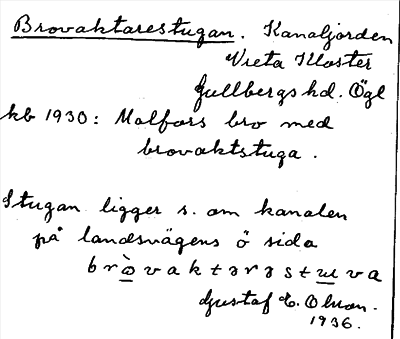 Brovaktarestugan. Kanaljorden
Vreta Kloster
Gullbergs hd. Ögl
kb 1930: Malfors bro med
brovaktstuga.
Stugan ligger s. om kanalen
på landsvägens ö sida
bròvaktarəstuva
Gustaf E. Olson.
1936.